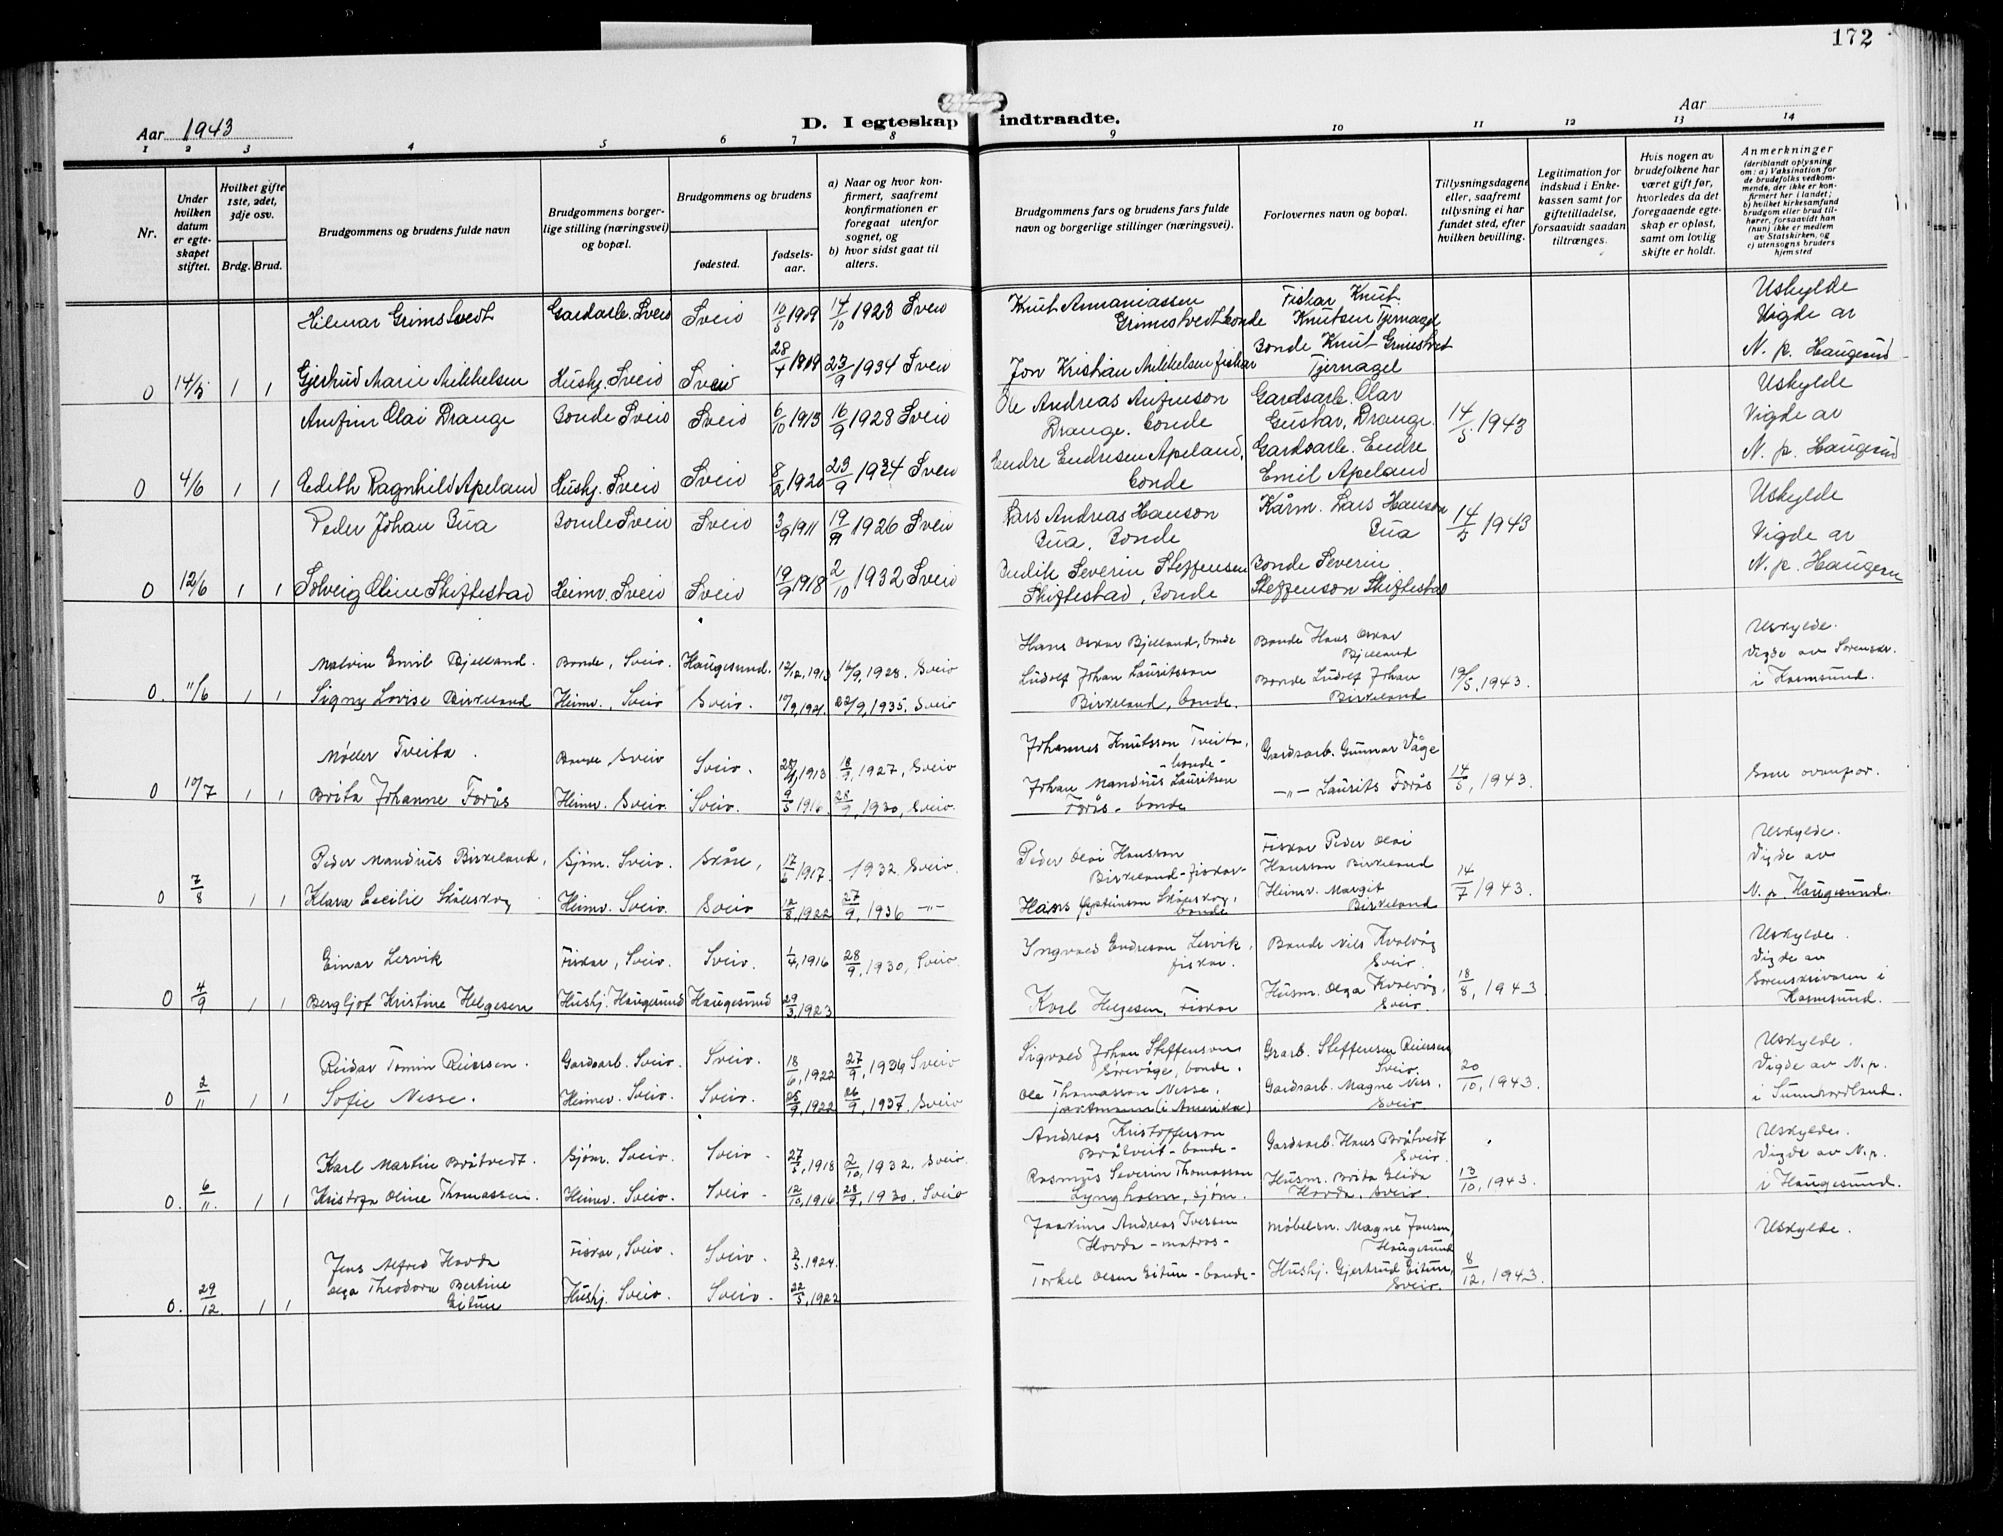 172
Aar 1943
D. I egteskap indtraadte.
Aar
1 2 3 4 5 6 7 8 9 10 11 12 13 14
Nr.
Under hvilken datum er egteskapet stiftet.
Hvilket gifte 1ste, 2det, 3dje osv.
Brdg. Brud.
Brudgommens og brudens fulde navn
Brudgommens borgerlige stilling (næringsvei) og bopæl.
Brudgommens og brudens
fødested.
fødselsaar.
a) Naar og hvor konfirmert, saafremt konfirmationen er foregaat utenfor sognet, og
b) hvor sidst gaat til alters.
Brudgommens fars og brudens fars fulde navn og borgerlige stillinger (næringsvei).
Forlovernes navn og bopæl.
Tillysningsdagene eller, saafremt tillysning ei har fundet sted, efter hvilken bevilling.
Legitimation for indskud i Enkekassen samt for giftetilladelse, forsaavidt saadan tiltrænges.
Hvis nogen av brudefolkene har været gift før, hvorledes da det foregaaende egteskap er opløst, samt om lovlig skifte er holdt.
Anmerkninger
(deriblandt oplysning om: a) Vaksination for de brudefolks vedkommende, der ikke er konfirmert her i landet; b) hvilket kirkesamfund brudgom eller brud tilhører, forsaavidt han (hun) ikke er medlem av Statskirken, og c) utensogns bruders hjemsted
Hilmar Grimstvedt Gardsarb. Sveio Sveio 10/5 1909 14/10 1923 Sveio Knut Annaniassen Grimstvedt bonde Fiskar Knut Knutsen Tjernagel Uskylde Vigde av
0 14/5 1 1 Gjertrud Marie Mikkelsen Hushj. Sveio Sveio 28/4 1919 23/9 1934 Sveio Jon Kristian Mikkelsen fiskar Bonde Knut Grimstvet Tjernagel N. p. Haugesund
Anfinn Olai Drange Bonde Sveio Sveio 6/10 1913 16/9 1928 Sveio Ole Andreas Anfinson Drange. bonde Gardsarb. Olav Gustav Drange. 14/5 1943 Uskylde Vigde av
0 4/6 1 1 Edith Ragnhild Apeland Hushj. Sveio Sveio 8/2 1920 23/9 1934 Sveio Endre Endresen Apeland, bonde Gardsarb. Endre Emil Apeland N. p. Haugesund
Peder Johan Bua Bonde Sveio Sveio 3/9 1911 19/9 1926 Sveio Lars Andreas Hanson Bua, Bonde Kårm. Lars Hanson Bua 14/5 1943 Uskylde Vigde av
0 12/6 1 1 Solveig Oline Skiftestad Heimv. Sveio Sveio 19/9 1918 2/10 1932 Sveio Severin Steffensen Skiftestad, Bonde Bonde Severin Steffenson Skiftestad N. p. Haugesun
Malvin Emil Bjelland. Bonde, Sveio. Haugesund. 12/12, 1913 16/9, 1928. Sveio Hans Oskar Bjelland, bonde Bonde Hans Oskar Bjelland Uskylde. Vigde av Sorenskr.
0. 11/6 1 1 Signy Lovise Birkeland Heimv., Sveio Sveio. 17/9, 1921. 22/9, 1935. Sveio Ludolf Johan Lauritsson Birkeland, bonde. Bonde Ludolf Johan Birkeland 19/5, 1943. i Karmsund.
Møller Tveita. Bonde Sveio Sveio. 1913 18/9, 1927, Sveio Johannes Knutsson Tveita, -bonde- Gardsarb. Gunnar Våge
0 10/7 1 1 Brita Johanne Forås Heimv. Sveio. Sveio. 9/5 1916 28/9, 1930, Sveio. Johan Mandius Lauritsen Forås - bonde -"- Laurits Forås 14/5, 1943. Som ovanfor.
Peder Mandius Birkeland, Sjøm. Sveio. Skåre, 17/6 1917. 1932. Sveio. Peder Olai Hansson Birkeland - fiskar - Fiskar Peder Olai Hansson Birkeland Uskylde. Vigde av
0 7/8 1 1 Klara Cecilie Skålskog Heimv. Sveio. Sveio 12/8, 1922 27/9, 1936 -"- Hans Skålskog, bonde Heimv. Margit Birkeland 14/7 1943. N. p. Haugesund.
Einar Lervik Fiskar, Sveio. Sveio. 1/4, 1916 28/9, 1930, Sveio. Ingvald Endreson Lervik, fiskar. Bonde Nils Kvalvåg Sveio. Uskylde. Vigde av
0 4/9 1 1 Bergljot Kristine Helgesen Hushj. Haugesund Haugesund 29/3, 1923 Karl Helgesen, Fiskar Husm. Olga Kvalvåg, Sveio. 18/8, 1943 Sorenskrivaren i Karmsund.
Reidar Tomin Reiersen. Gardsarb. Sveio. Sveio. 18/6, 1922 27/9, 1936 Sveio Sigvald Johan Steffenson Sørvåge, bonde. Grarb. Steffensen Reiersen Sveio. Uskylde. Vigde av N. p.
0 2/11 1 1 Sofie Nesse. Heimev. Sveio. Sveio. 25/9, 1922 26/9, 1937. Sveio Ole Thomasson Nesse. (i Amerika) Gardsarb. Magne Sveio. 20/10, 1943. i Sunnhordland.
Karl Martin Bråtvedt. Sjøm. Sveio. Sveio. 27/5, 1918 2/10, 1932. Sveio. Andreas Kristofferson Bråtveit - bonde - Gardsarb. Hans Bråtvedt Sveio. Uskylde. Vigde av N. p.
0. 6/11 1 1 Oline Thomassen. Heimv. Sveio. Sveio. 12/10, 1916 28/9, 1930. Sveio Rasmus Severin Thomasson Lyngholm, sjøm. Husm. Brita Hovda, Sveio. 13/10, 1943. i Haugesund.
Jens Alfred Hovda Fiskar, Sveio. Sveio. 3/5. 1924. Joakim Andreas Iversen Hovda - matros - Møbelsn. Magne Jansen, Haugesund Uskylde.
0. 29/12. 1 1 Olga Theodora Bertine Eitun Hushj. Sveio. Sveio. 22/5, 1922 Torkel Olsen Eitun - bonde - Hushj. Gjertrud Eitun, Sveio. 8/12, 1943.